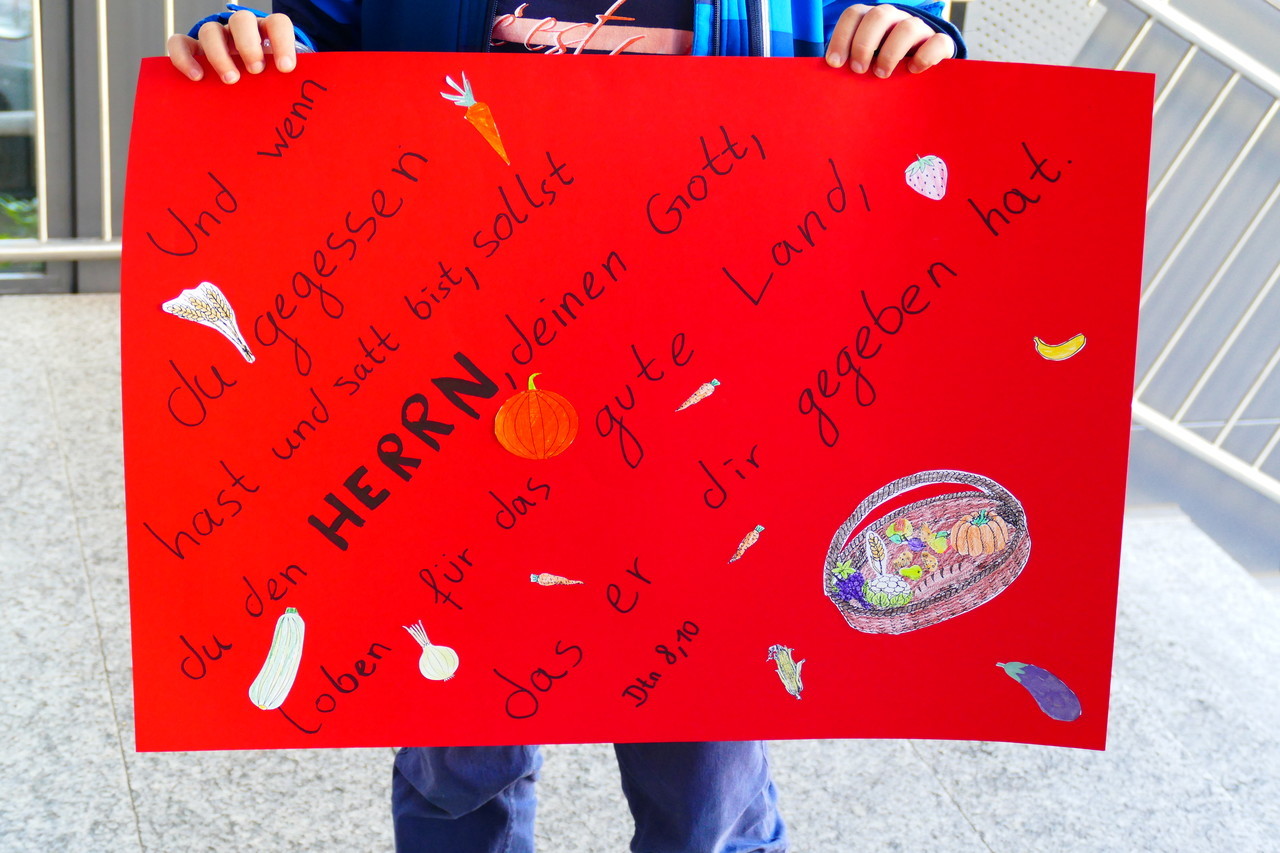 Und wenn
du gegessen
hast und satt bist, sollst
du den HERRN, deinen Gott,
loben für das gute Land,
das er dir gegeben hat.
Dtn 8,10